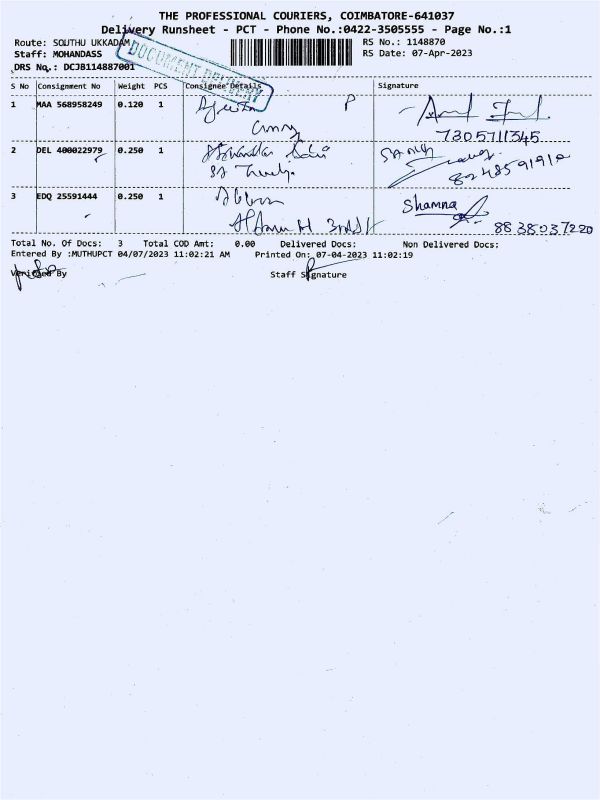 THE PROFESSIONAL COURIERS, COIMBATORE-641037
Delivery Runsheet - PCT - Phone No.:0422-3505555 - Page No.:1
Route: SOUTHU UKKADAM
RS No.: 1148870
Staff: MOHANDASS
RS Date: 07-Apr-2023
DRS No.: DCJB114887001
DOCUMENT DELIVERY
S No Consignment No Weight PCS Consignee Details Signature
1 MAA 568958249 0.120 1 P
7305711345
2 DEL 400022979 0.250 1
8248591910
3 EDQ 25591444 0.250 1 Shamna
8838037220
Total No. Of Docs: 3 Total COD Amt: 0.00 Delivered Docs: Non Delivered Docs:
Entered By :MUTHUPCT 04/07/2023 11:02:21 AM Printed On: 07-04-2023 11:02:19
Verified By Staff Signature